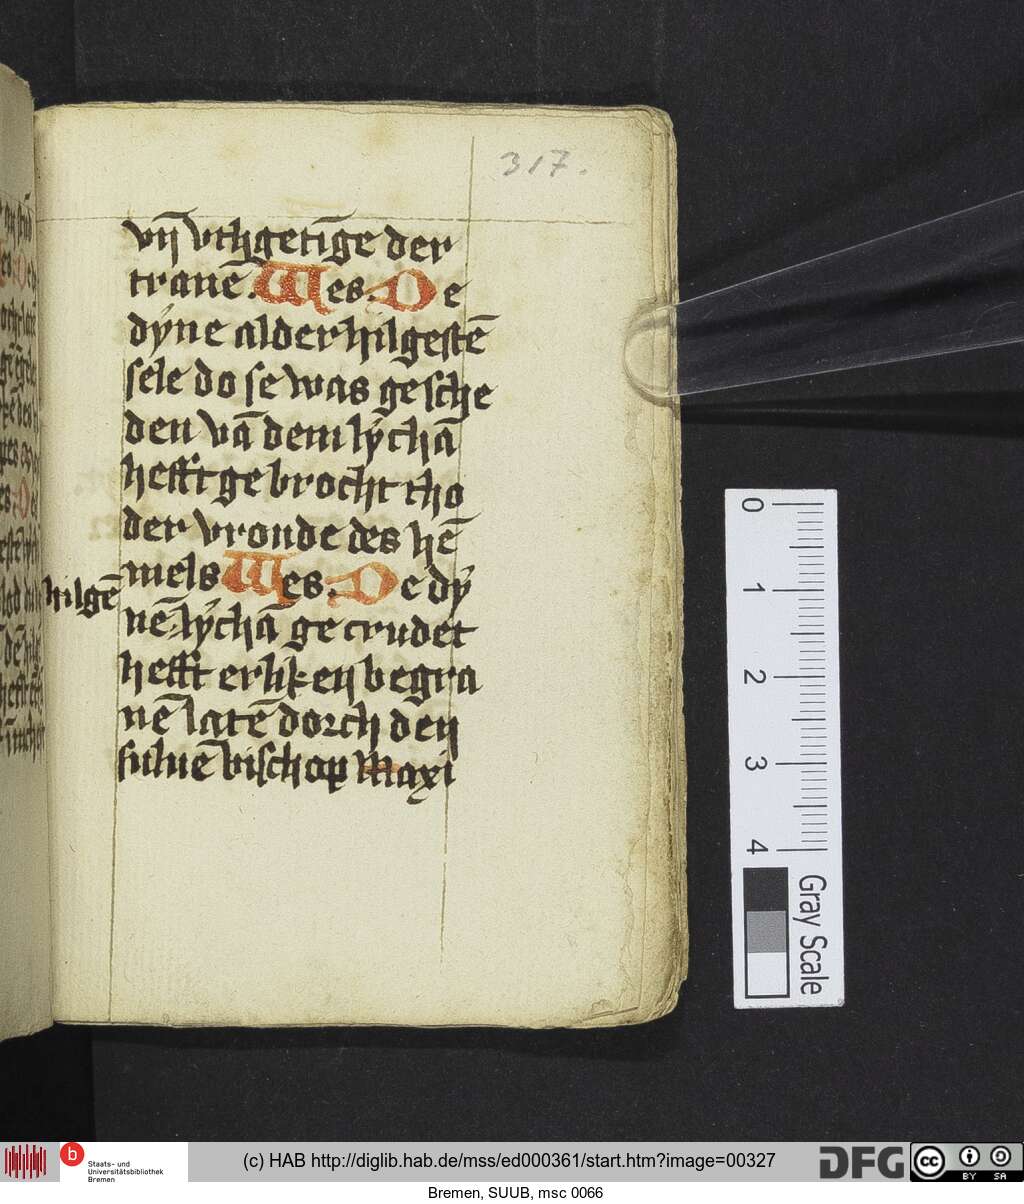 317.
vn̄ vthgeti̅ge der
tranē. Wes. De
dyne alderhilgestē
sele do se was gesche
den vā dem lychā
hefft gebrocht tho
der vronde des hē
mels Wes. De dy
hilgē
nē lychā gecrudet
hefft erliken begra
nē latē dorch den
suluē bischop Maxi
0
1
2
3
4
Gray Scale
b Staats- und
Universitätsbibliothek
Bremen
(c) HAB http://diglib.hab.de/mss/ed000361/start.htm?image=00327
DFG
cc BY SA
Bremen, SUUB, msc 0066